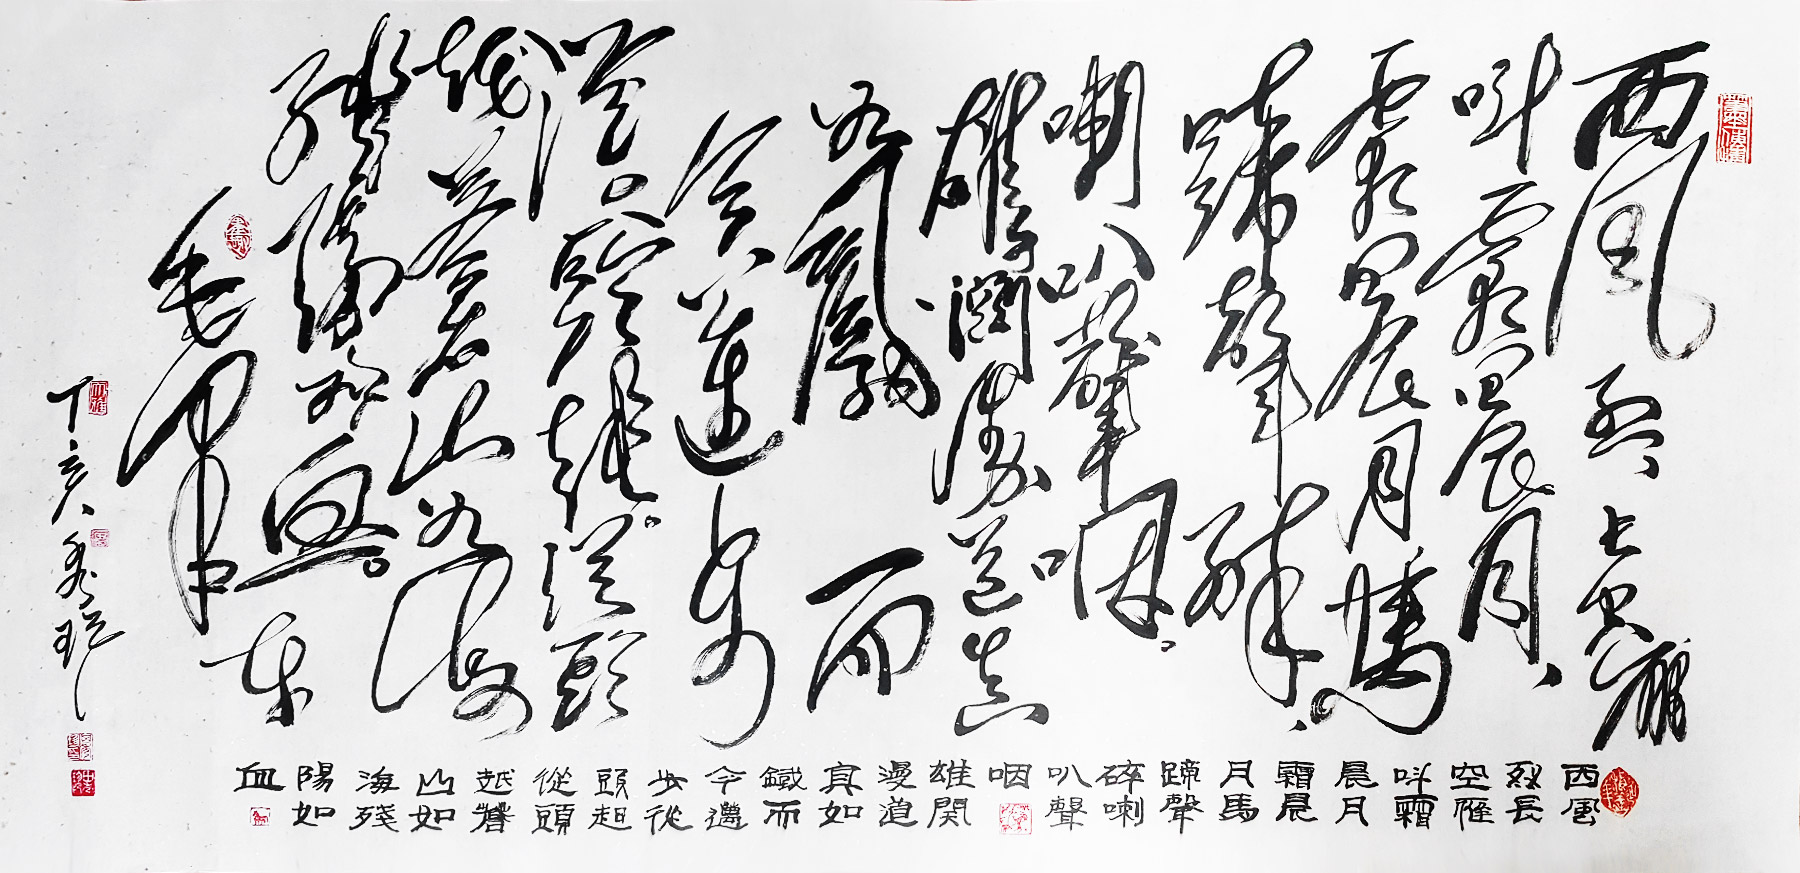 西風烈長空雁
叫霜晨月
霜晨月馬
蹄聲碎
喇叭聲咽
雄關漫道真
如鐵而
今邁步
從頭越從頭
越蒼山如海
殘陽如血
毛澤東
丁亥
西風
烈長
空雁
叫霜
晨月
霜晨
月馬
蹄聲
碎喇
叭聲
咽
雄関
漫道
真如
鐵而
今邁
步從
頭起
從頭
越蒼
山如
海殘
陽如
血